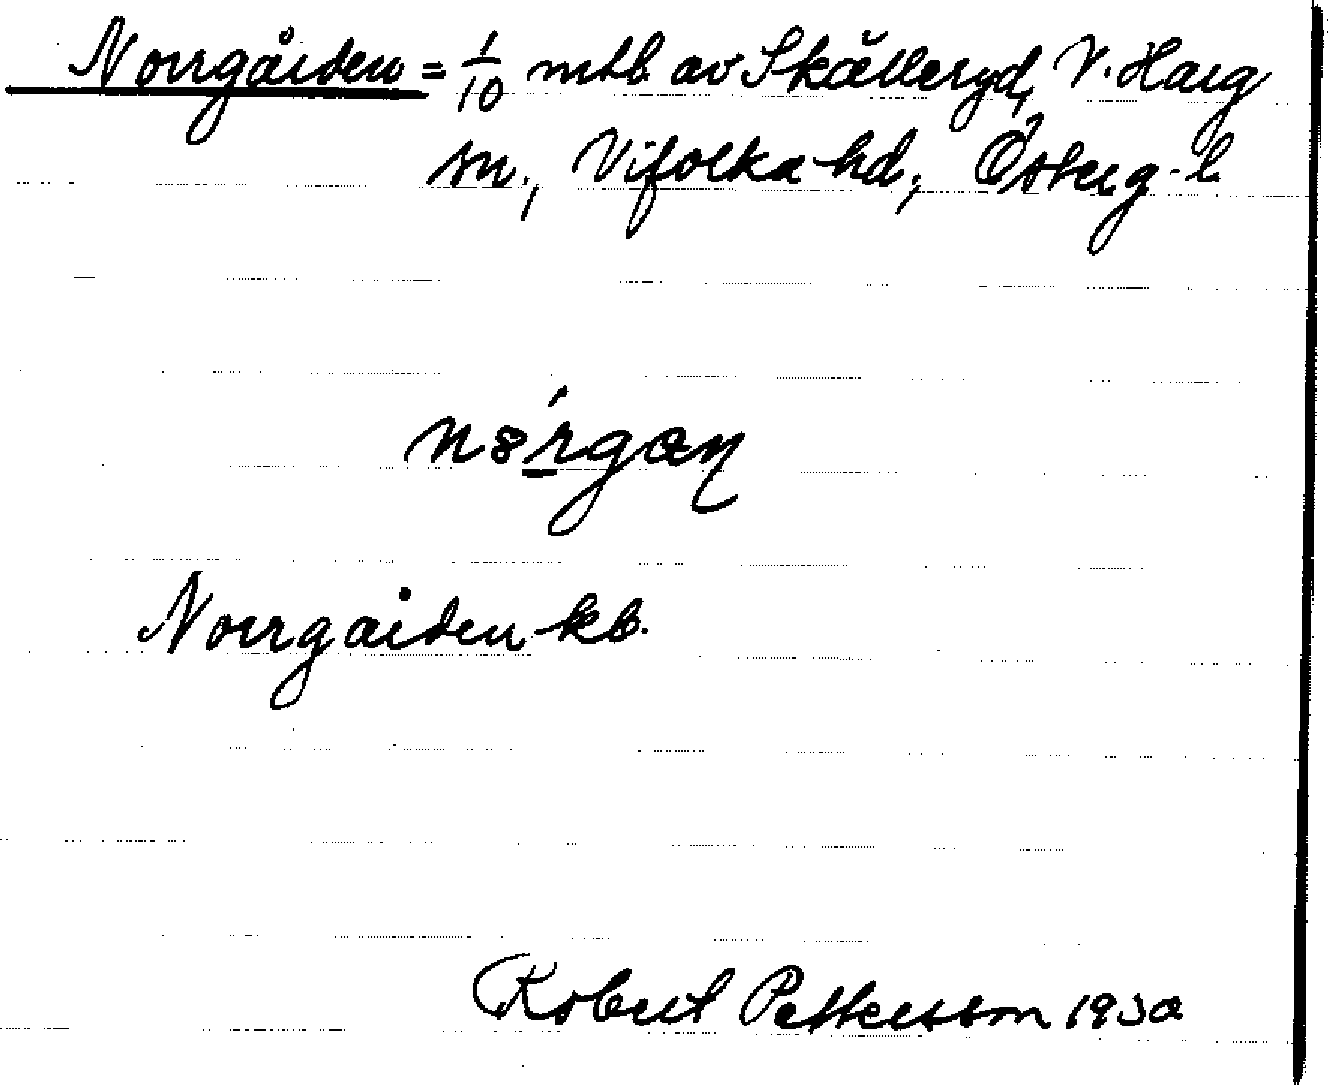 Norrgården = 1/10 mtb. av Skälleryd, V. Harg
sn., Vifolka hd; Österg. l
Norrgården kb.
Robert Pettersson